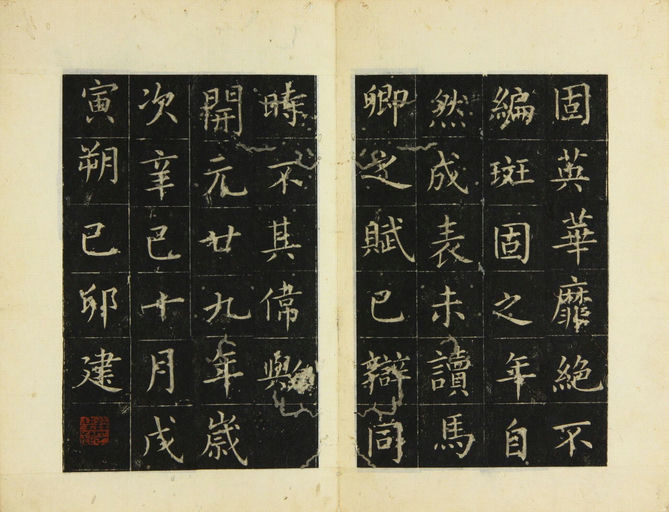 固英華靡絶不
編斑固之年自
然成表未讀馬
卿之賦已辯同
時不其偉與
開元廿九年歲
次辛巳十月戊
寅朔己卯建